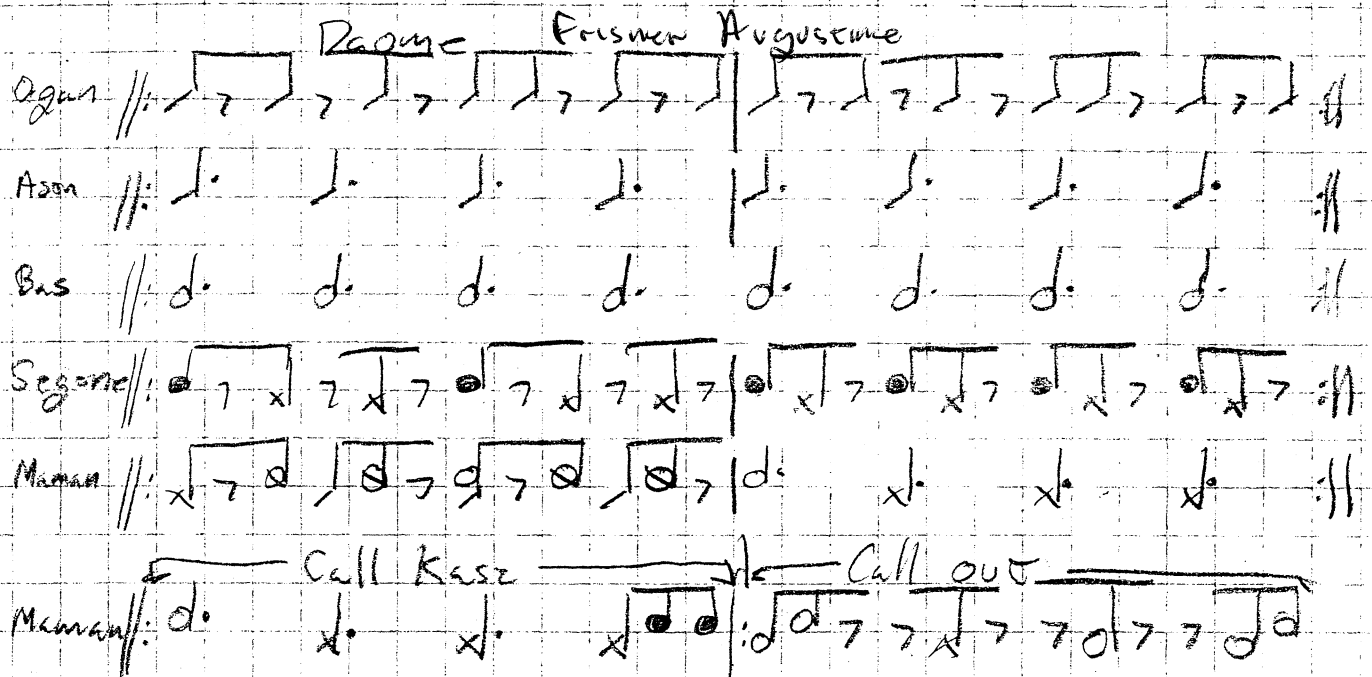 Daome Frisner Augustine
Ogan
Ason
Bas
Segone
Maman
Call Kase Call out
Maman